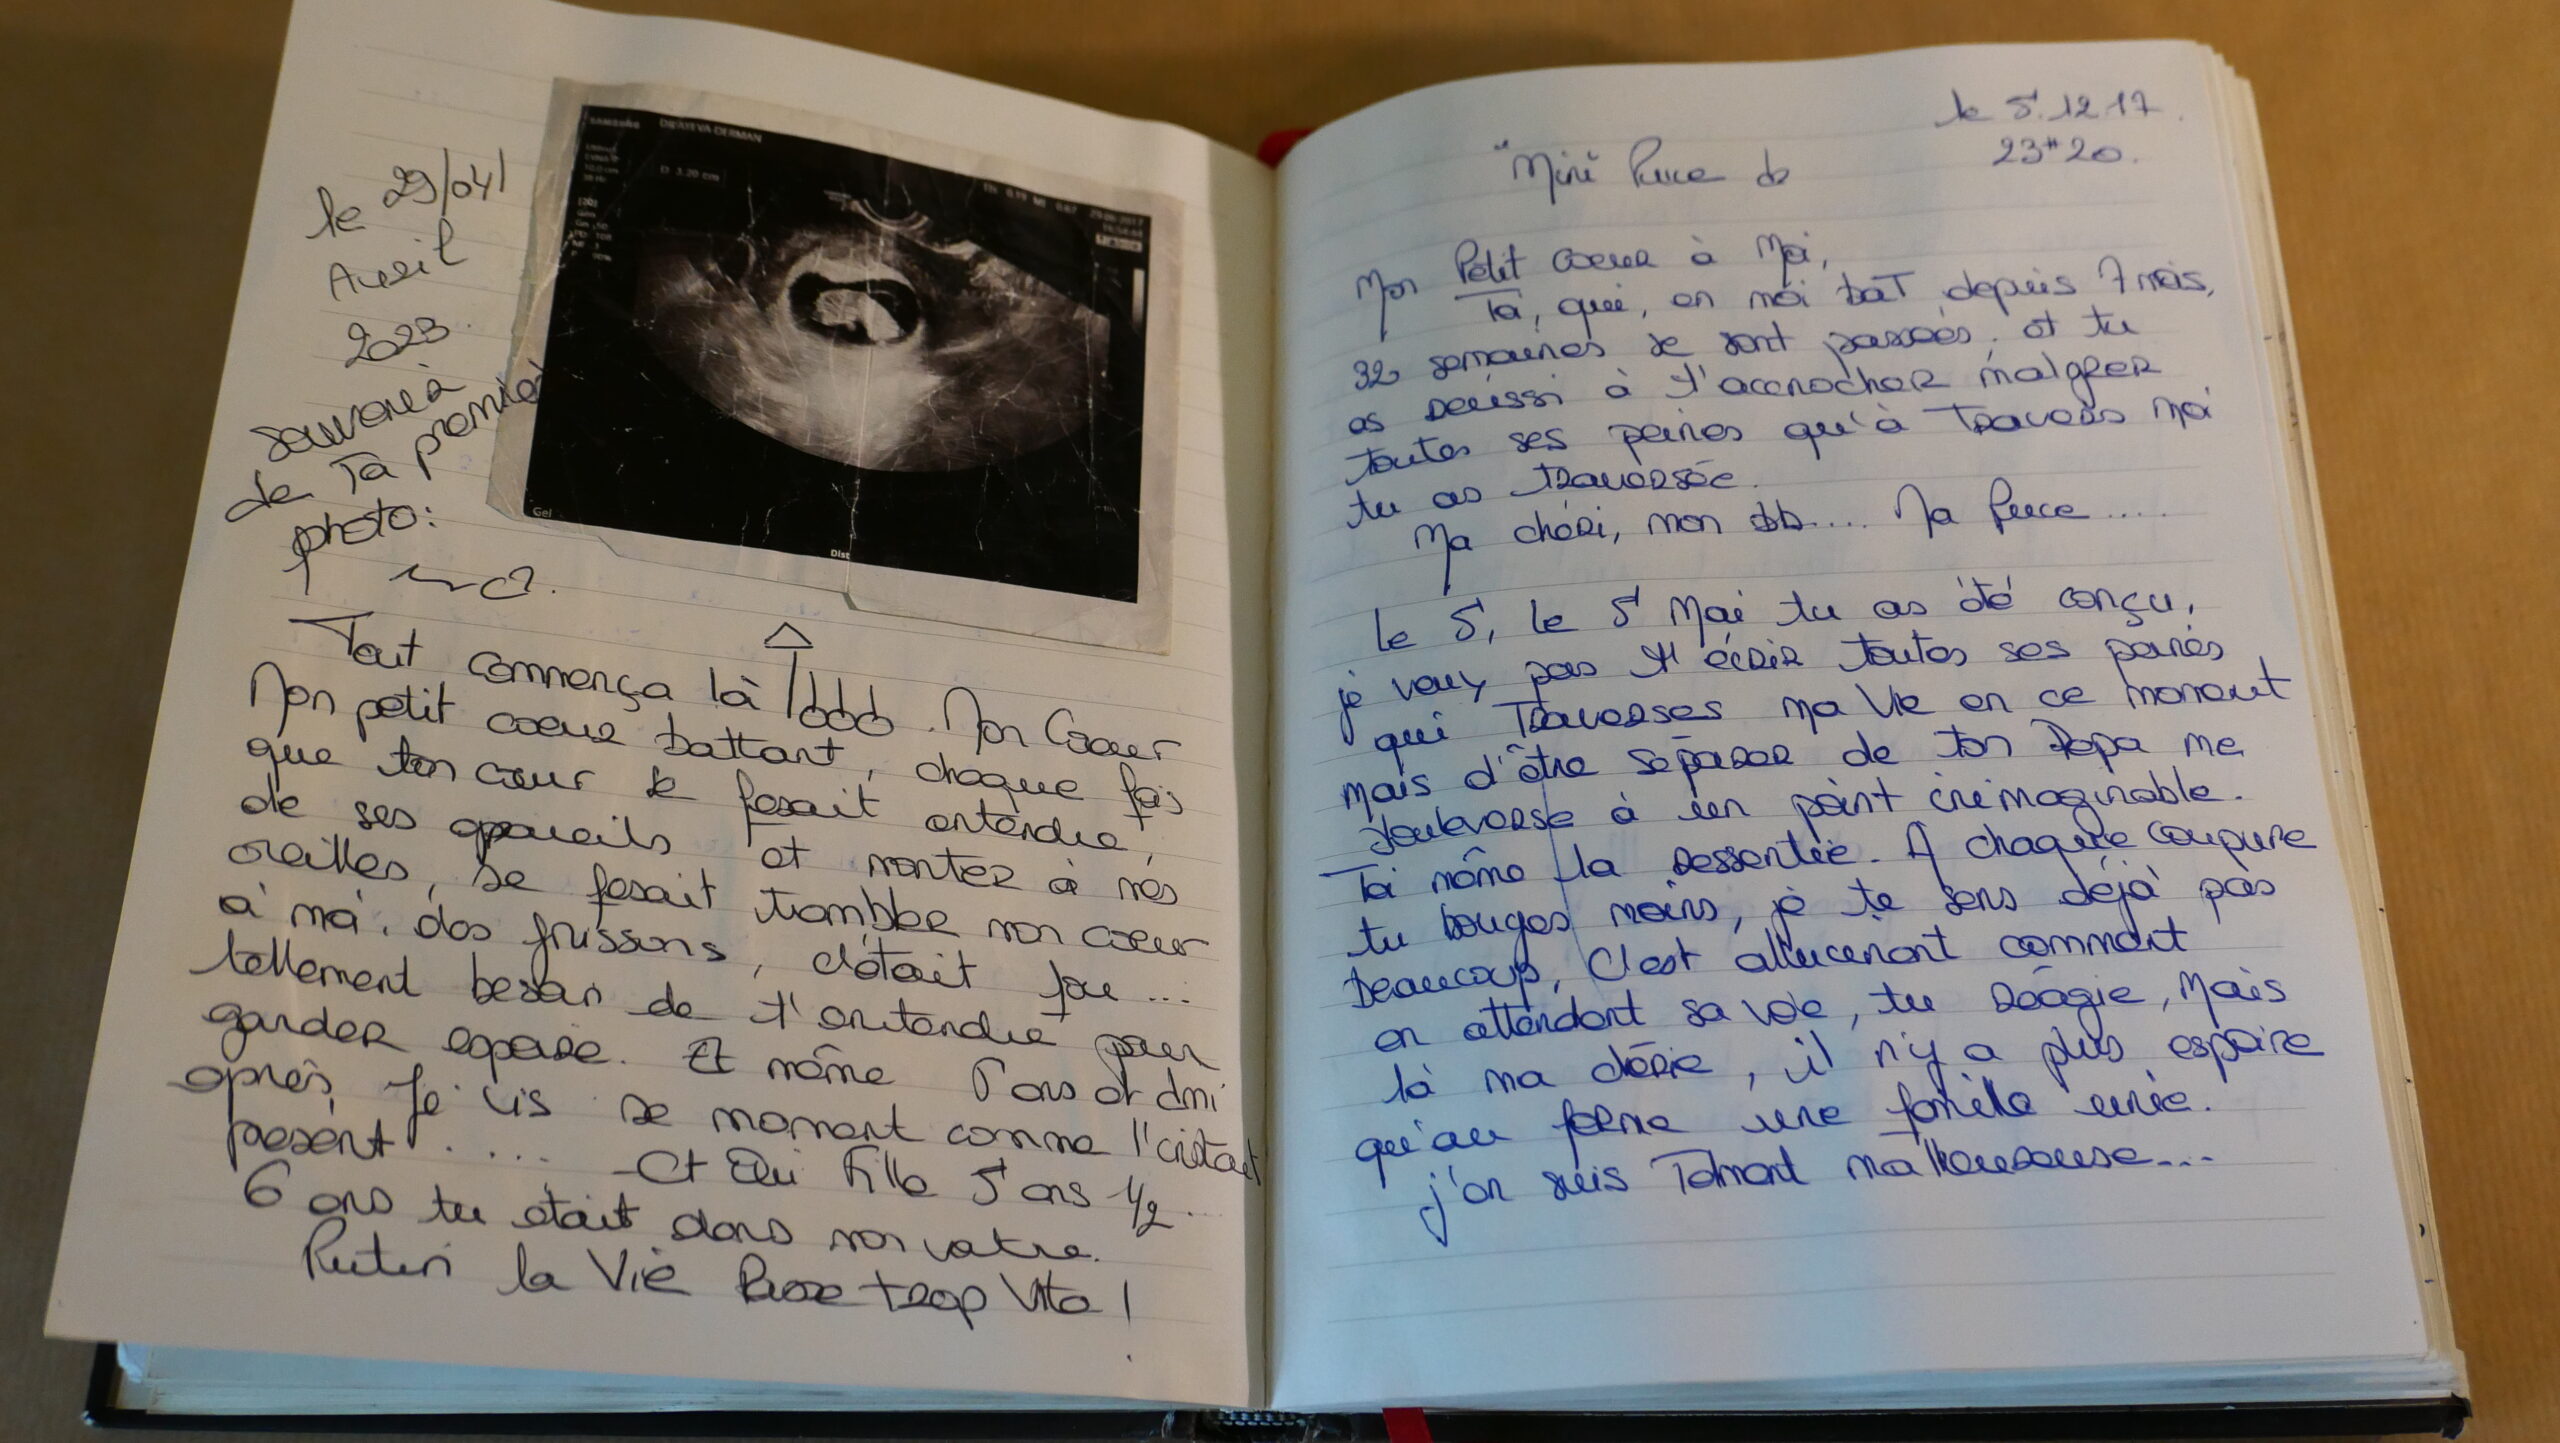 le 29/04/
Avril
2023.
Souvenir à
de Ta première
photo:
SAMSUNG DR AYEVA-DERMAN
D 3.20 cm
29.06.2017
Gel
Dist
Tout commença là . Mon Coeur
Mon petit coeur battant, chaque fois
que ton coeur se fesait entendre,
de ses appareils et montez à nos
oreilles, se fesait trembler mon coeur
à moi. des frissons, c'était fou ...
tellement besoin de t'entendre pour
garder espoire. Et même 5 ans et dmi
après, Je vis se moment comme l'instant
présent ..... Et Oui fille 5 ans 1/2 ..
6 ans tu était dans mon ventre.
Putin la Vie Passe trop Vite !
le 5.12.17.
23H20.
"Mini Puce de
Mon Petit coeur à Moi,
Toi, qui, en moi bat depuis 7 mois,
32 semaines se sont passées, et tu
as réussi à t'accrocher malgrer
toutes ses peines qu'à Travers moi
tu as traversée.
Ma chéri, mon bb.... Ma Puce ....
Le 5, le 5 Mai tu as été conçu,
je veux pas t'écrir toutes ses peines
qui Traverses ma Vie en ce moment
mais d'être séparer de ton Papa me
bouleverse à un point inimaginable.
Toi même la ressentie. A chaque coupure
tu bouges moins, je te sens déjà pas
beaucoup, C'est allucinant comment
en attendant sa voie, tu réagie, Mais
là ma chérie, il n'y a plus espoire
qu'au forme une famille unie.
j'en suis Telment malheureuse...